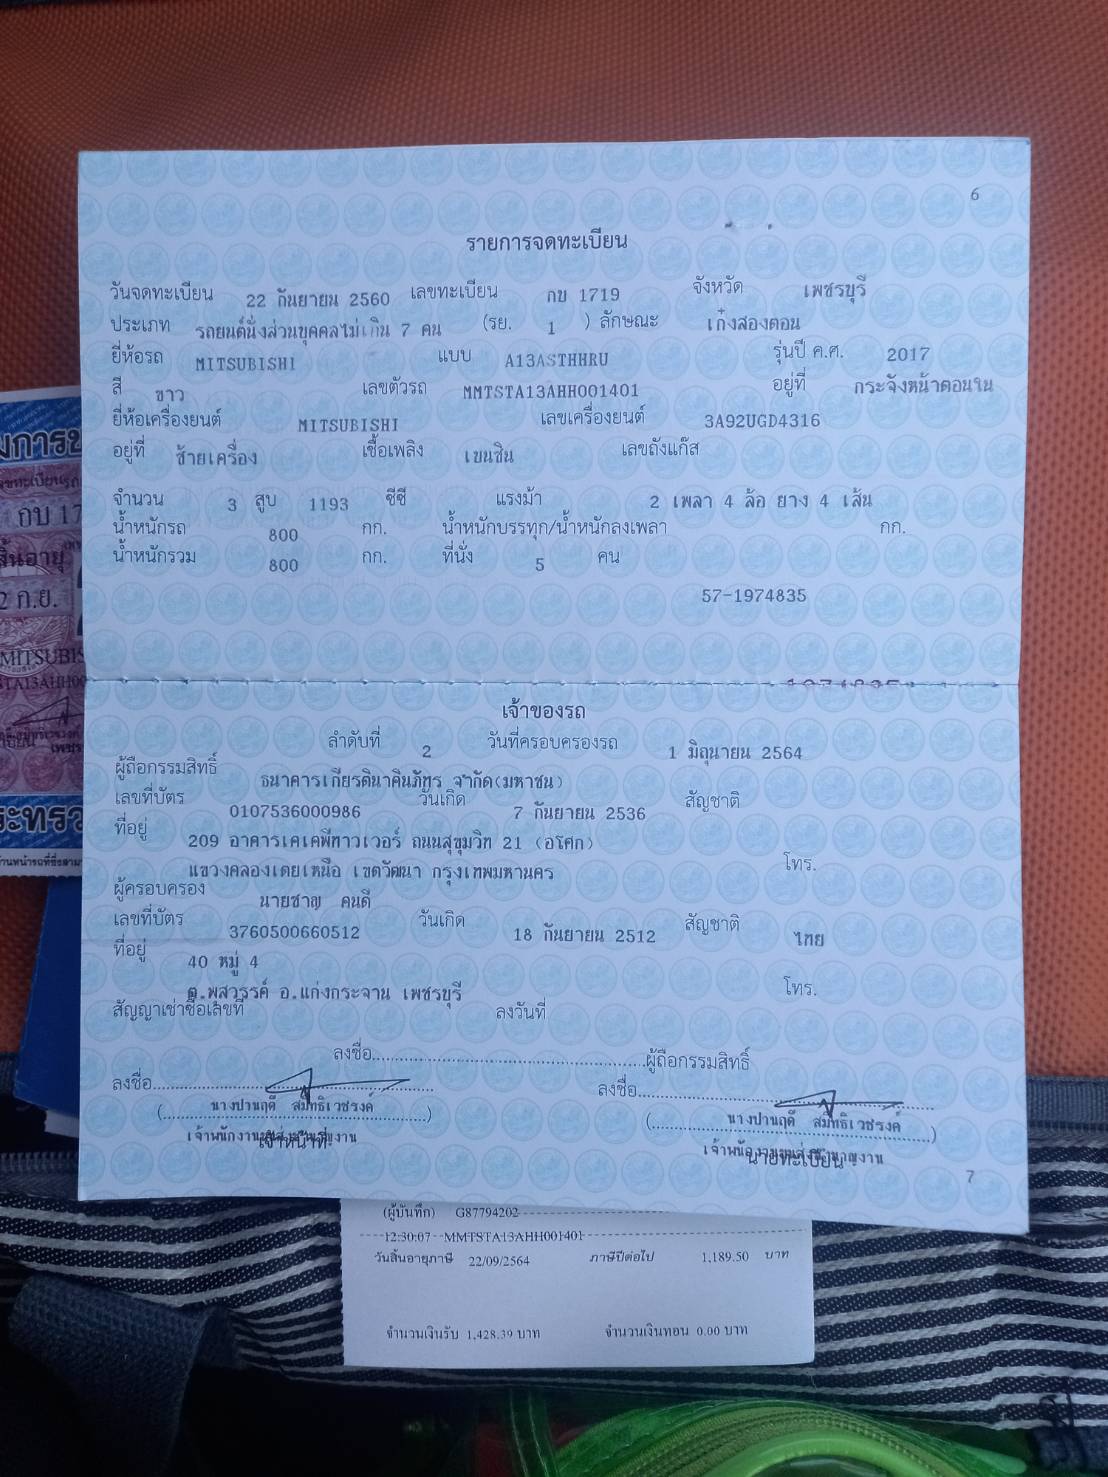 6
รายการจดทะเบียน
วันจดทะเบียน 22 กันยายน 2560 เลขทะเบียน กข 1719 จังหวัด เพชรบุรี
ประเภท รถยนต์นั่งส่วนบุคคลไม่เกิน 7 คน (รย. 1 ) ลักษณะ เก๋งสองตอน
ยี่ห้อรถ MITSUBISHI แบบ A13ASTHHRU รุ่นปี ค.ศ. 2017
สี ขาว เลขตัวรถ MMTSTA13AHH001401 อยู่ที่ กระจังหน้าตอนใน
ยี่ห้อเครื่องยนต์ MITSUBISHI เลขเครื่องยนต์ 3A92UGD4316
อยู่ที่ ซ้ายเครื่อง เชื้อเพลิง เบนซิน เลขถังแก๊ส
จำนวน 3 สูบ 1193 ซีซี แรงม้า 2 เพลา 4 ล้อ ยาง 4 เส้น
น้ำหนักรถ 800 กก. น้ำหนักบรรทุก/น้ำหนักลงเพลา กก.
น้ำหนักรวม 800 กก. ที่นั่ง 5 คน
57-1974835
เจ้าของรถ
ลำดับที่ 2 วันที่ครอบครองรถ 1 มิถุนายน 2564
ผู้ถือกรรมสิทธิ์ ธนาคารเกียรตินาคินภัทร จำกัด(มหาชน)
เลขที่บัตร 0107536000986 วันเกิด 7 กันยายน 2536 สัญชาติ
ที่อยู่ 209 อาคารเคเคพีทาวเวอร์ ถนนสุขุมวิท 21 (อโศก)
แขวงคลองเตยเหนือ เขตวัฒนา กรุงเทพมหานคร โทร.
ผู้ครอบครอง นายชาญ คนดี
เลขที่บัตร 3760500660512 วันเกิด 18 กันยายน 2512 สัญชาติ ไทย
ที่อยู่ 40 หมู่ 4
ต.พุสวรรค์ อ.แก่งกระจาน เพชรบุรี โทร.
สัญญาเช่าซื้อเลขที่ ลงวันที่
ลงชื่อ ผู้ถือกรรมสิทธิ์
ลงชื่อ ลงชื่อ
(นางปานฤดี สมิทธิเวชรงค์) (นางปานฤดี สมิทธิเวชรงค์)
เจ้าหน้าที่ นายทะเบียน
7
(ผู้บันทึก) G87794202
12:30:07--MMTSTA13AHH001401
วันสิ้นอายุภาษี 22/09/2564 ภาษีปีต่อไป 1,189.50 บาท
จำนวนเงินรับ 1,428.39 บาท จำนวนเงินทอน 0.00 บาท